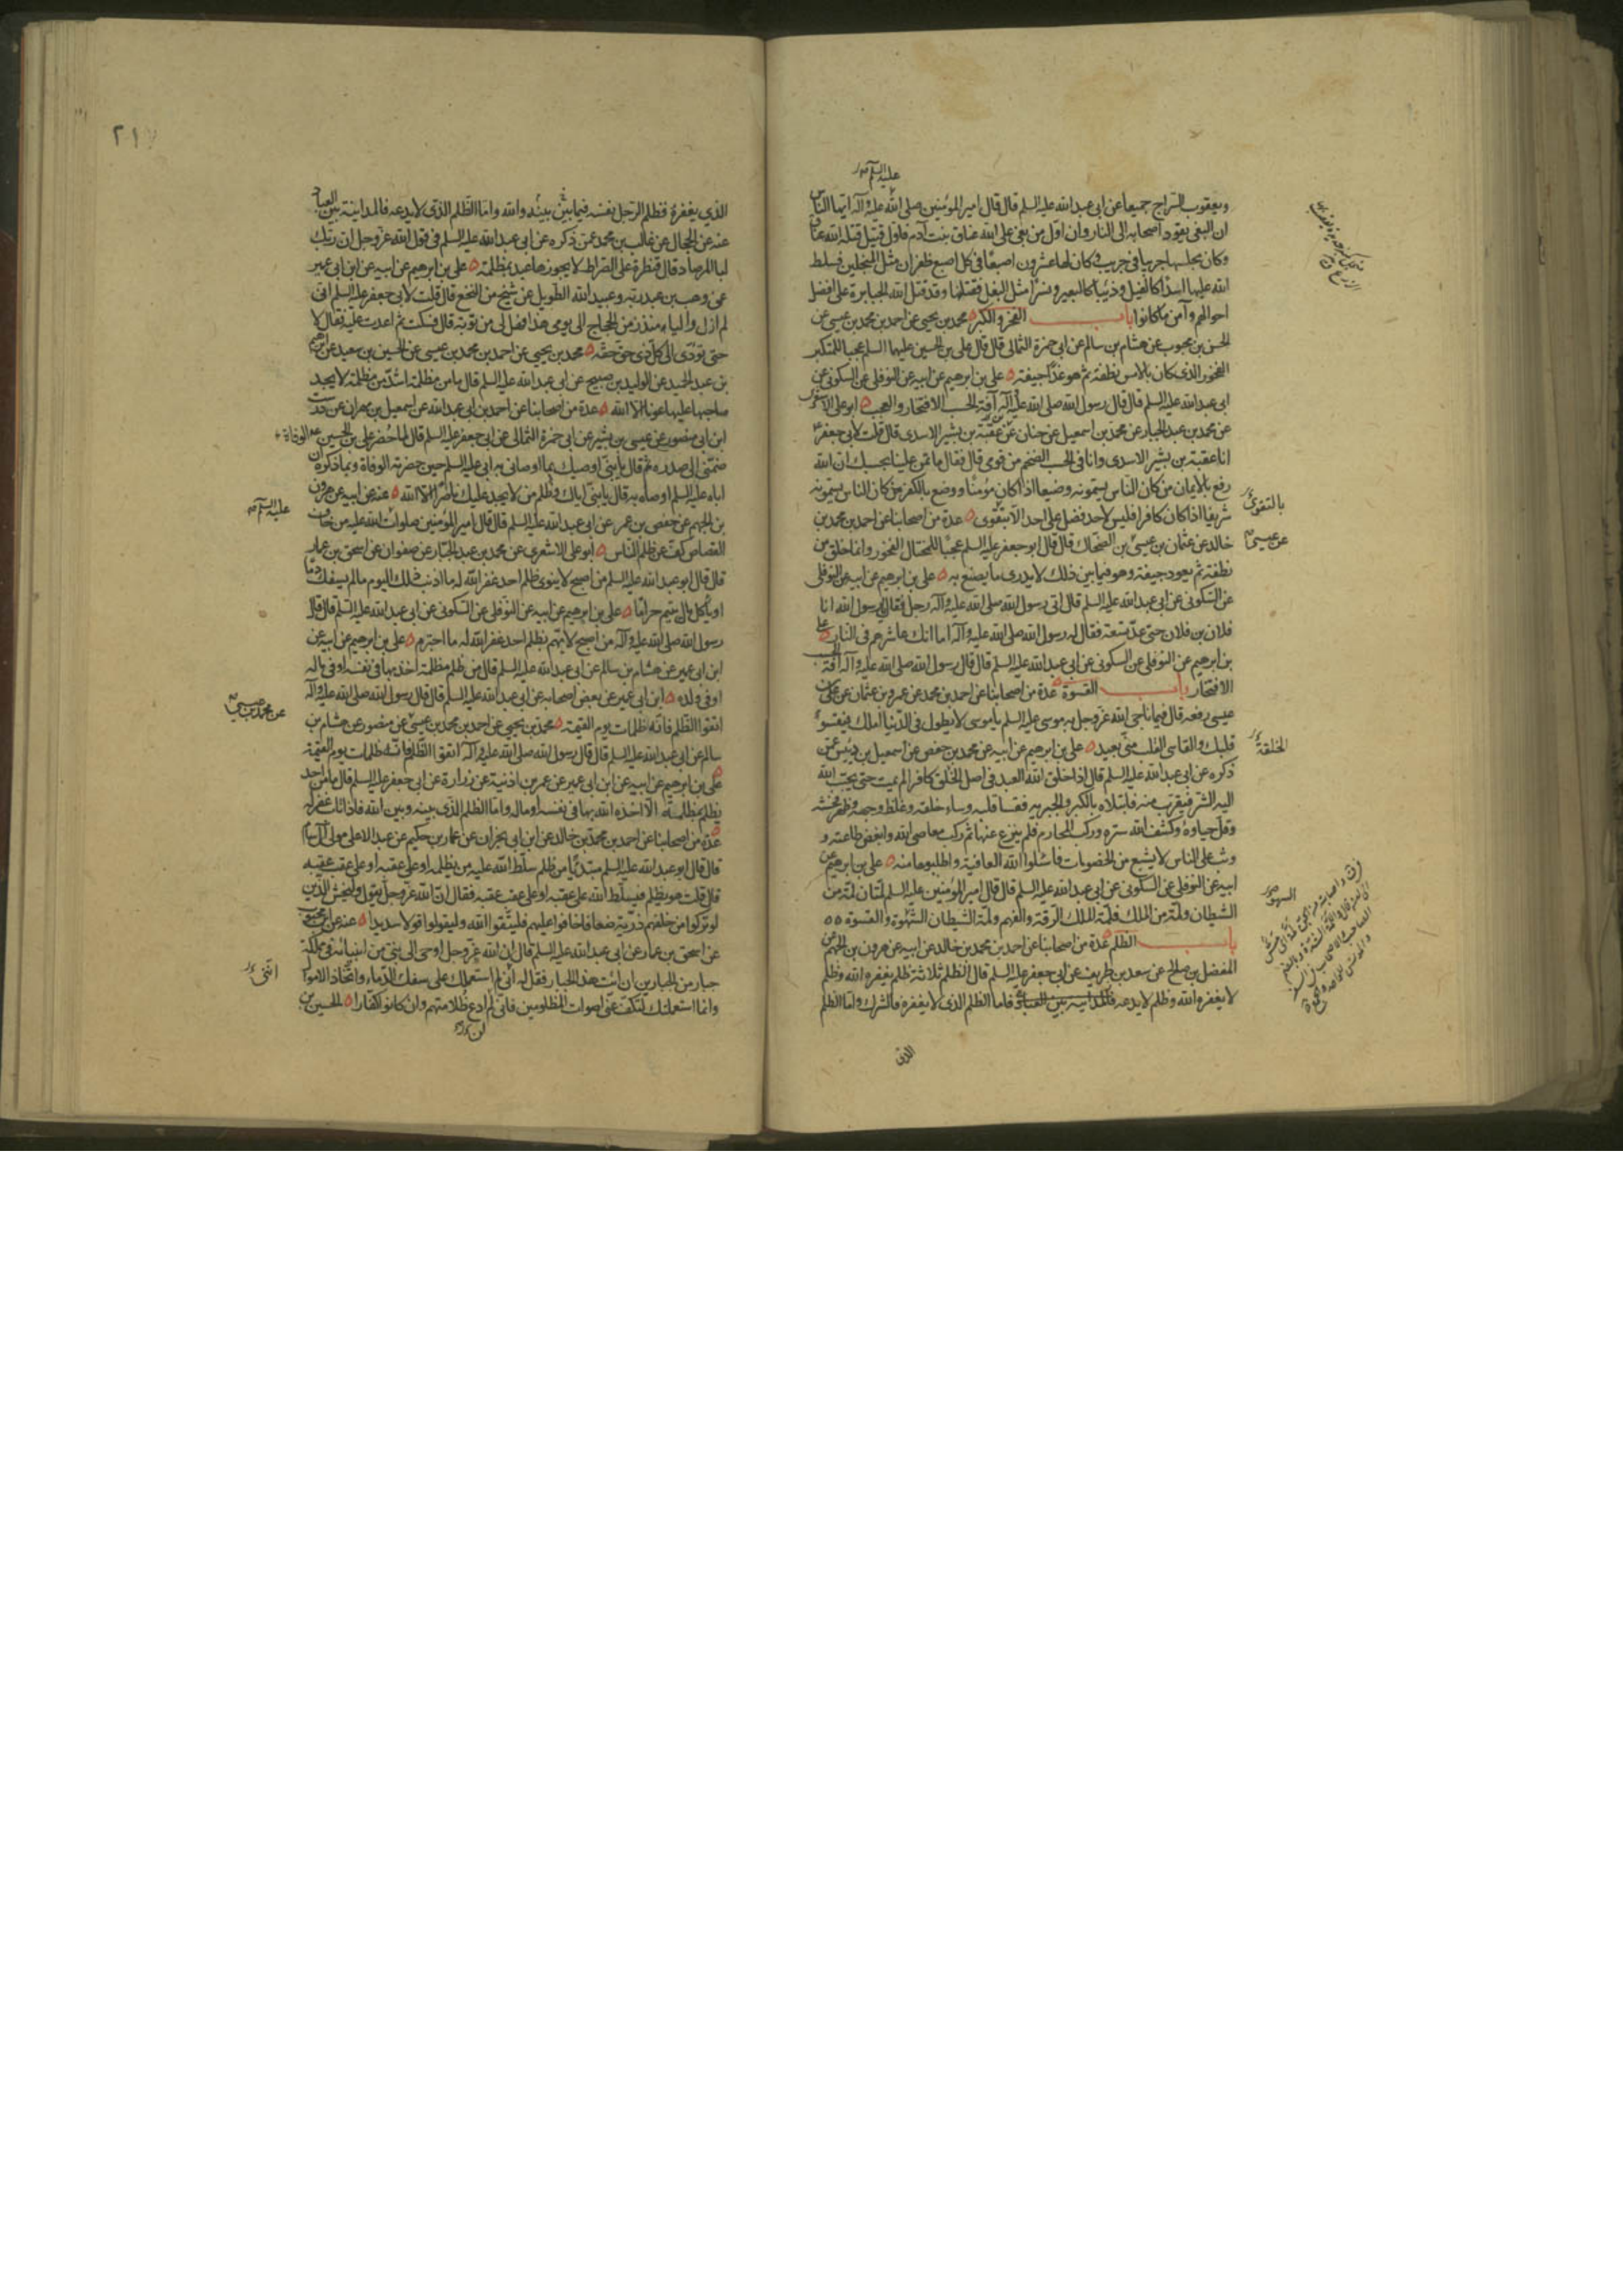 عليه السلم
ويعقوب السراج جميعا عن ابى عبد الله عليه السلم قال قال امير المؤمنين صلى الله عليه وآله ايها الناس
ان البغى يقود اصحابه الى النار وان اول من بغى على الله عناق بنت آدم فاول قتيل قتله الله عناق
وكان مجلسها جريبا فى جريب وكان لها عشرون اصبعا فى كل اصبع ظفران مثل المنجلين فسلط
الله عليها اسدا كالفيل وذئبا كالبعير ونسرا مثل البغل فقتلنها وقد قتل الله الجبابرة على افضل
احوالهم وآمن ما كانوا باب الفخر والكبر محمد بن يحيى عن احمد بن محمد بن عيسى عن
الحسن بن محبوب عن هشام بن سالم عن ابى حمزة الثمالى قال قال على بن الحسين عليهما السلم عجبا للمتكبر
الفخور الذى كان بالامس نطفة ثم هو غدا جيفة على بن ابرهيم عن ابيه عن النوفلى عن السكونى عن
ابى عبد الله عليه السلم قال قال رسول الله صلى الله عليه وآله آفة الحسب الافتخار والعجب ابو على الاشعرى
عن محمد بن عبد الجبار عن محمد بن اسمعيل عن حنان عن عقبة بن بشير الاسدى قال قلت لابى جعفر
انا عقبة بن بشير الاسدى وانا فى الحسب الضخم من قومى قال فقال ما تمن علينا بحسبك ان الله
رفع بالايمان من كان الناس يسمونه وضيعا اذا كان مؤمنا ووضع بالكفر من كان الناس يسمونه
شريفا اذا كان كافرا فليس لاحد فضل على احد الا بتقوى عدة من اصحابنا عن احمد بن محمد بن
بالتقوى
خالد عن عثمان بن عيسى بن الضحاك قال قال ابو جعفر عليه السلم عجبا للمختال الفخور وانما خلق من
عن عيسى
نطفة ثم يعود جيفة وهو فيما بين ذلك لا يدرى ما يصنع به على بن ابرهيم عن ابيه عن النوفلى
عن السكونى عن ابى عبد الله عليه السلم قال اتى رسول الله صلى الله عليه وآله رجل فقال يا رسول الله انا
فلان بن فلان حتى عد تسعة فقال له رسول الله صلى الله عليه وآله اما انك عاشرهم فى النار على
بن ابرهيم عن النوفلى عن السكونى عن ابى عبد الله عليه السلم قال قال رسول الله صلى الله عليه وآله آفة الحسب
الافتخار باب القسوة عدة من اصحابنا عن احمد بن محمد عن عمرو بن عثمان عن على بن
عيسى رفعه قال فيما ناجى الله عز وجل به موسى عليه السلم يا موسى لا يطول فى الدنيا املك فيقسو
قلبك والقاسى القلب منى بعيد على بن ابرهيم عن ابيه عن محمد بن حفص عن اسمعيل بن دبيس عمن
ذكره عن ابى عبد الله عليه السلم قال اذا خلق الله العبد فى اصل الخلق كافرا لم يمت حتى يحبب الله
الخلقة
اليه الشر فيقرب منه فابتلاه بالكبر والجبرية فقسا قلبه وساء خلقه وغلظ وجهه وظهر فحشه
وقل حياؤه وكشف الله ستره وركب المحارم فلم ينزع عنها ثم ركب معاصى الله وابغض طاعته و
وثب على الناس لا يشبع من الخصومات فاسئلوا الله العافية واطلبوها منه على بن ابرهيم عن
ابيه عن النوفلى عن السكونى عن ابى عبد الله عليه السلم قال قال امير المؤمنين عليه السلم لمتان لمة من
الشيطان ولمة من الملك فلمة الملك الرقة والفهم ولمة الشيطان الشهوة والقسوة
السهو
باب الظلم عدة من اصحابنا عن احمد بن محمد بن خالد عن ابيه عن هرون بن الجهم عن
المفضل بن صالح عن سعد بن طريف عن ابى جعفر عليه السلم قال الظلم ثلاثة ظلم يغفره الله وظلم
لا يغفره الله وظلم لا يدعه فاما الظلم الذى لا يغفره فالشرك واما الظلم
الذى
٢١٧
الذى يغفره فظلم الرجل نفسه فيما بينه وبين الله واما الظلم الذى لا يدعه فالمداينة بين العباد
عنه عن الحجال عن غالب بن محمد عمن ذكره عن ابى عبد الله عليه السلم فى قول الله عز وجل ان ربك
لبالمرصاد قال قنطرة على الصراط لا يجوزها عبد بمظلمة على بن ابرهيم عن ابيه عن ابن ابى عمير
عن وهب بن عبد ربه وعبيد الله الطويل عن شيخ من النخع قال قلت لابى جعفر عليه السلم انى
لم ازل واليا منذ زمن الحجاج الى يومى هذا فهل لى من توبة قال فسكت ثم اعدت عليه فقال لا
حتى تؤدى الى كل ذى حق حقه محمد بن يحيى عن احمد بن محمد بن عيسى عن الحسين بن سعيد عن ابرهيم
بن عبد الحميد عن الوليد بن صبيح عن ابى عبد الله عليه السلم قال ما من مظلمة اشد من مظلمة لا يجد
صاحبها عليها عونا الا الله عدة من اصحابنا عن احمد بن ابى عبد الله عن اسمعيل بن مهران عن درست
ابن ابى منصور عن عيسى بن بشير عن ابى حمزة الثمالى عن ابى جعفر عليه السلم قال لما حضر على بن الحسين الوفاة
ضمنى الى صدره ثم قال يا بنى اوصيك بما اوصانى به ابى عليه السلم حين حضرته الوفاة وبما ذكر ان
اباه عليه السلم اوصاه به قال يا بنى اياك وظلم من لا يجد عليك ناصرا الا الله عنه عن ابيه عن هرون
عليه السلم
بن الجهم عن حفص بن عمر عن ابى عبد الله عليه السلم قال قال امير المؤمنين صلوات الله عليه من خاف
القصاص كف عن ظلم الناس ابو على الاشعرى عن محمد بن عبد الجبار عن صفوان عن اسحق بن عمار
قال قال ابو عبد الله عليه السلم من اصبح لا ينوى ظلم احد غفر الله له ما اذنب ذلك اليوم ما لم يسفك دما
او يأكل مال يتيم حراما على بن ابرهيم عن ابيه عن النوفلى عن السكونى عن ابى عبد الله عليه السلم قال قال
رسول الله صلى الله عليه وآله من اصبح لا يهم بظلم احد غفر الله له ما اجترم على بن ابرهيم عن ابيه عن
ابن ابى عمير عن هشام بن سالم عن ابى عبد الله عليه السلم قال من ظلم مظلمة اخذ بها فى نفسه او فى ماله
او فى ولده ابن ابى عمير عن بعض اصحابه عن ابى عبد الله عليه السلم قال قال رسول الله صلى الله عليه وآله
اتقوا الظلم فانه ظلمات يوم القيمة محمد بن يحيى عن احمد بن محمد بن عيسى عن منصور عن هشام بن
عن محمد بن عيسى
سالم عن ابى عبد الله عليه السلم قال قال رسول الله صلى الله عليه وآله اتقوا الظلم فانه ظلمات يوم القيمة
على بن ابرهيم عن ابيه عن ابن ابى عمير عن عمر بن اذينة عن زرارة عن ابى جعفر عليه السلم قال ما من احد
يظلم بمظلمة الا اخذه الله بها فى نفسه او ماله واما الظلم الذى بينه وبين الله فاذا تاب غفر له
عدة من اصحابنا عن احمد بن محمد بن خالد عن ابن ابى نجران عن عمار بن حكيم عن عبد الاعلى مولى آل سام
قال قال ابو عبد الله عليه السلم مبتدئا من ظلم سلط الله عليه من يظلمه او على عقبه او على عقب عقبه
قال قلت هو يظلم فيسلط الله على عقبه او على عقب عقبه فقال ان الله عز وجل يقول وليخش الذين
لو تركوا من خلفهم ذرية ضعافا خافوا عليهم فليتقوا الله وليقولوا قولا سديدا عنه عن ابن محبوب
عن اسحق بن عمار عن ابى عبد الله عليه السلم قال ان الله عز وجل اوحى الى نبى من انبيائه فى مملكة
جبار من الجبارين ان ائت هذا الجبار فقل له انى لم استعملك على سفك الدماء واتخاذ الاموال
اننى
وانما استعملتك لتكف عنى اصوات المظلومين فانى لم ادع ظلامتهم وان كانوا كفارا الحسين بن
لن